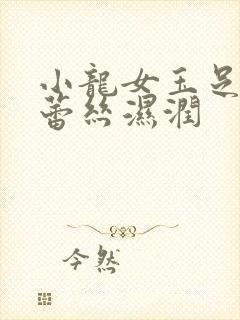 小龍女玉足
蕾絲濕潤
今然